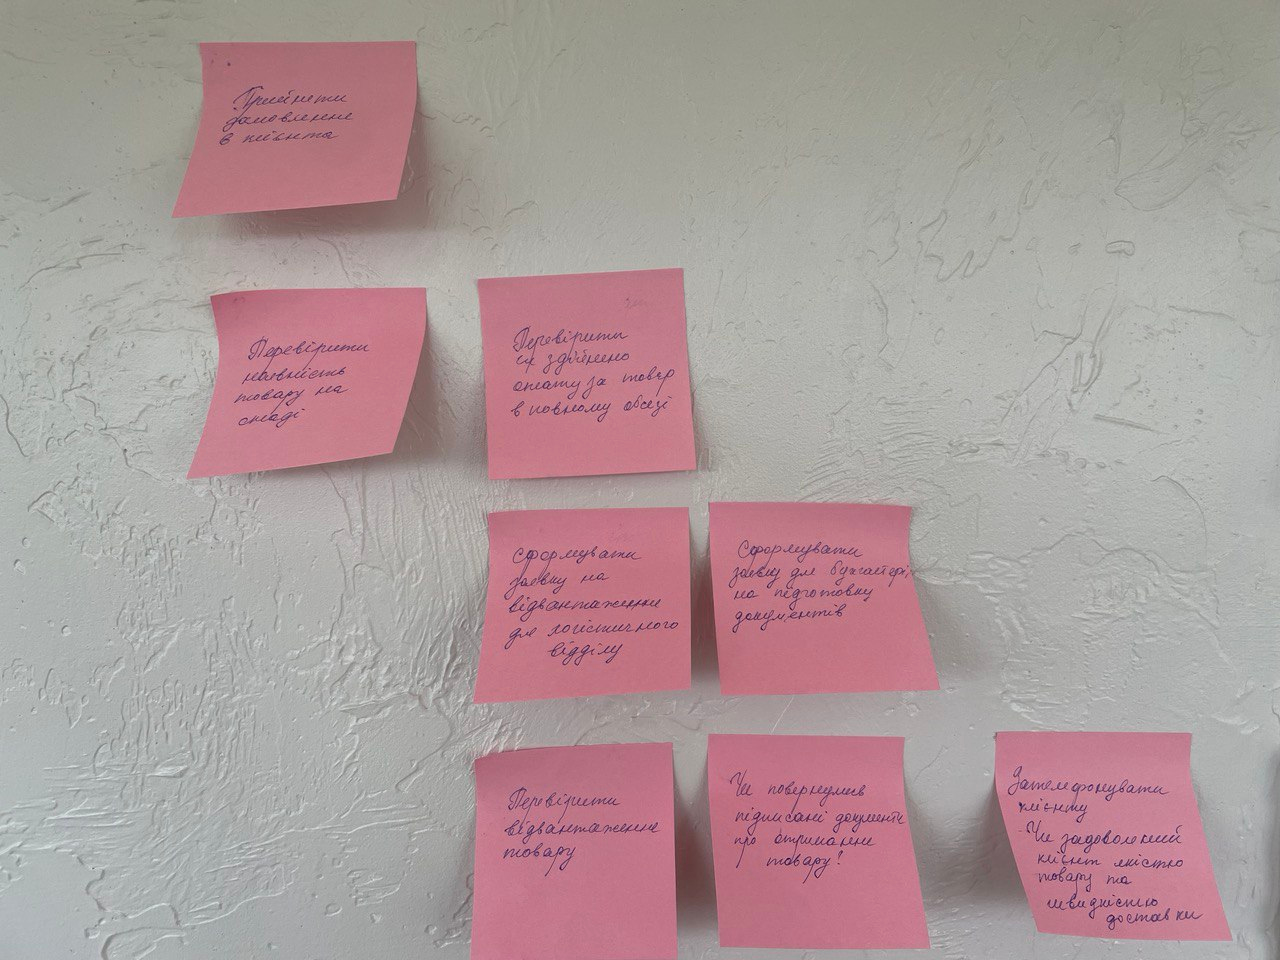 Прийняти
замовлення
в клієнта
Перевірити
наявність
товару на
складі
Перевірити
чи здійснено
оплату за товар
в повному обсязі
Сформувати
заявку на
відвантаження
для логістичного
відділу
Сформувати
заявку для бухгалтерії
на підготовку
документів
Перевірити
відвантаження
товару
Чи повернулись
підписані документи
про отримання
товару?
Зателефонувати
клієнту
- Чи задоволений
клієнт якістю
товару та
швидкістю
доставки